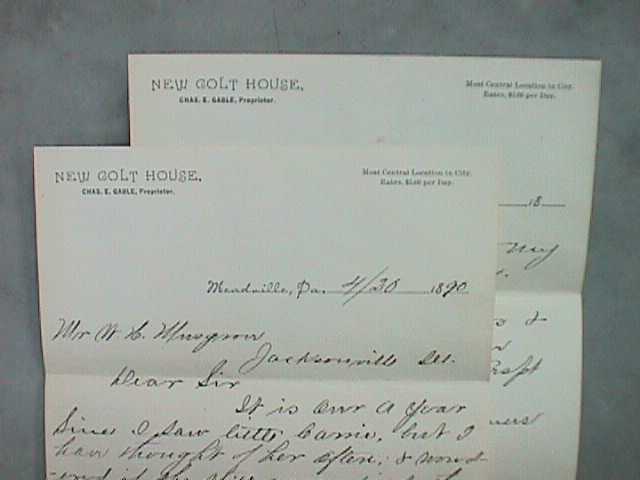 NEW COLT HOUSE,
CHAS. E. GABLE, Proprietor.
Most Central Location in City.
Rates, per Day.
18
May
&
Kept
NEW COLT HOUSE,
CHAS. E. GABLE, Proprietor.
Most Central Location in City.
Rates, per Day.
Meadville, Pa. 4/30 1890
Mr W. C. Musgrove
Jacksonville Ill.
Dear Sir
It is over a year
Since I saw little Carrie, but I
have thought of her often, &